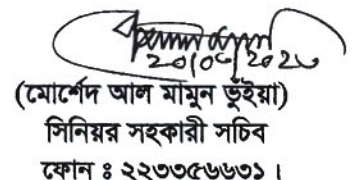 ২০/০৫/২০২৩
(মোর্শেদ আল মামুন ভূঁইয়া)
সিনিয়র সহকারী সচিব
ফোন ঃ ২২৩৩৫৬৬৩১ ।